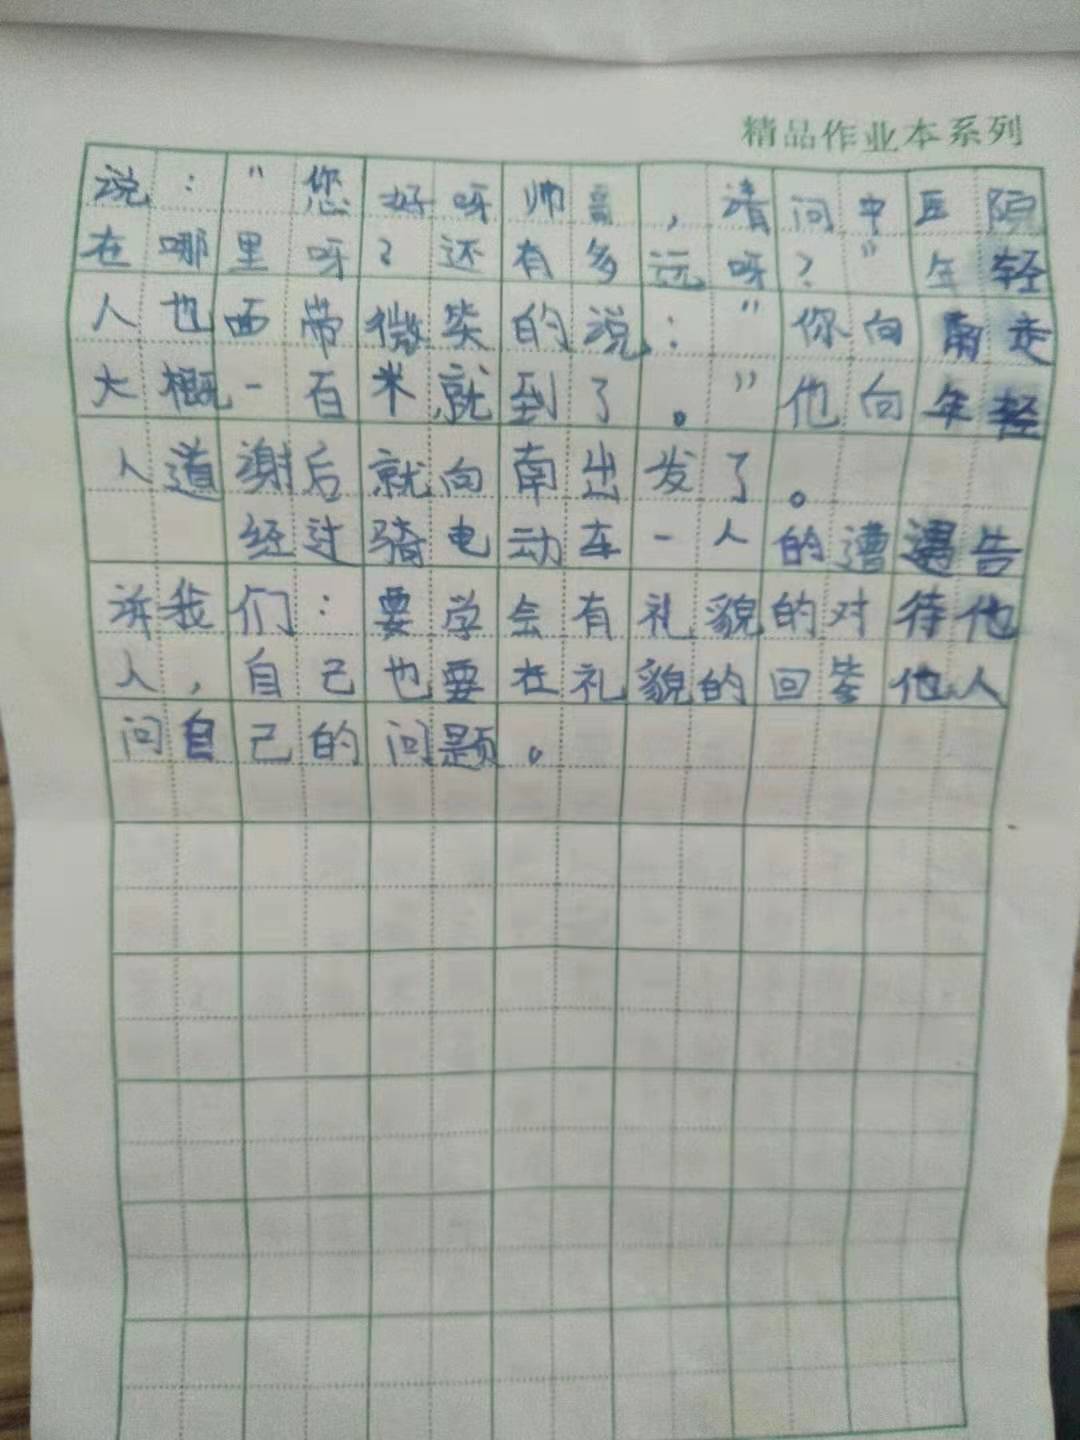 精品作业本系列
说："您好呀帅哥，请问中医院
在哪里呀？还有多远呀？"年轻
人也面带微笑的说："你向南走
大概一百米,就到了。"他向年轻
人道谢后就向南出发了。
经过骑电动车一人的遭遇告
诉我们：要学会有礼貌的对待他
人，自己也要在礼貌的回答他人
问自己的问题。